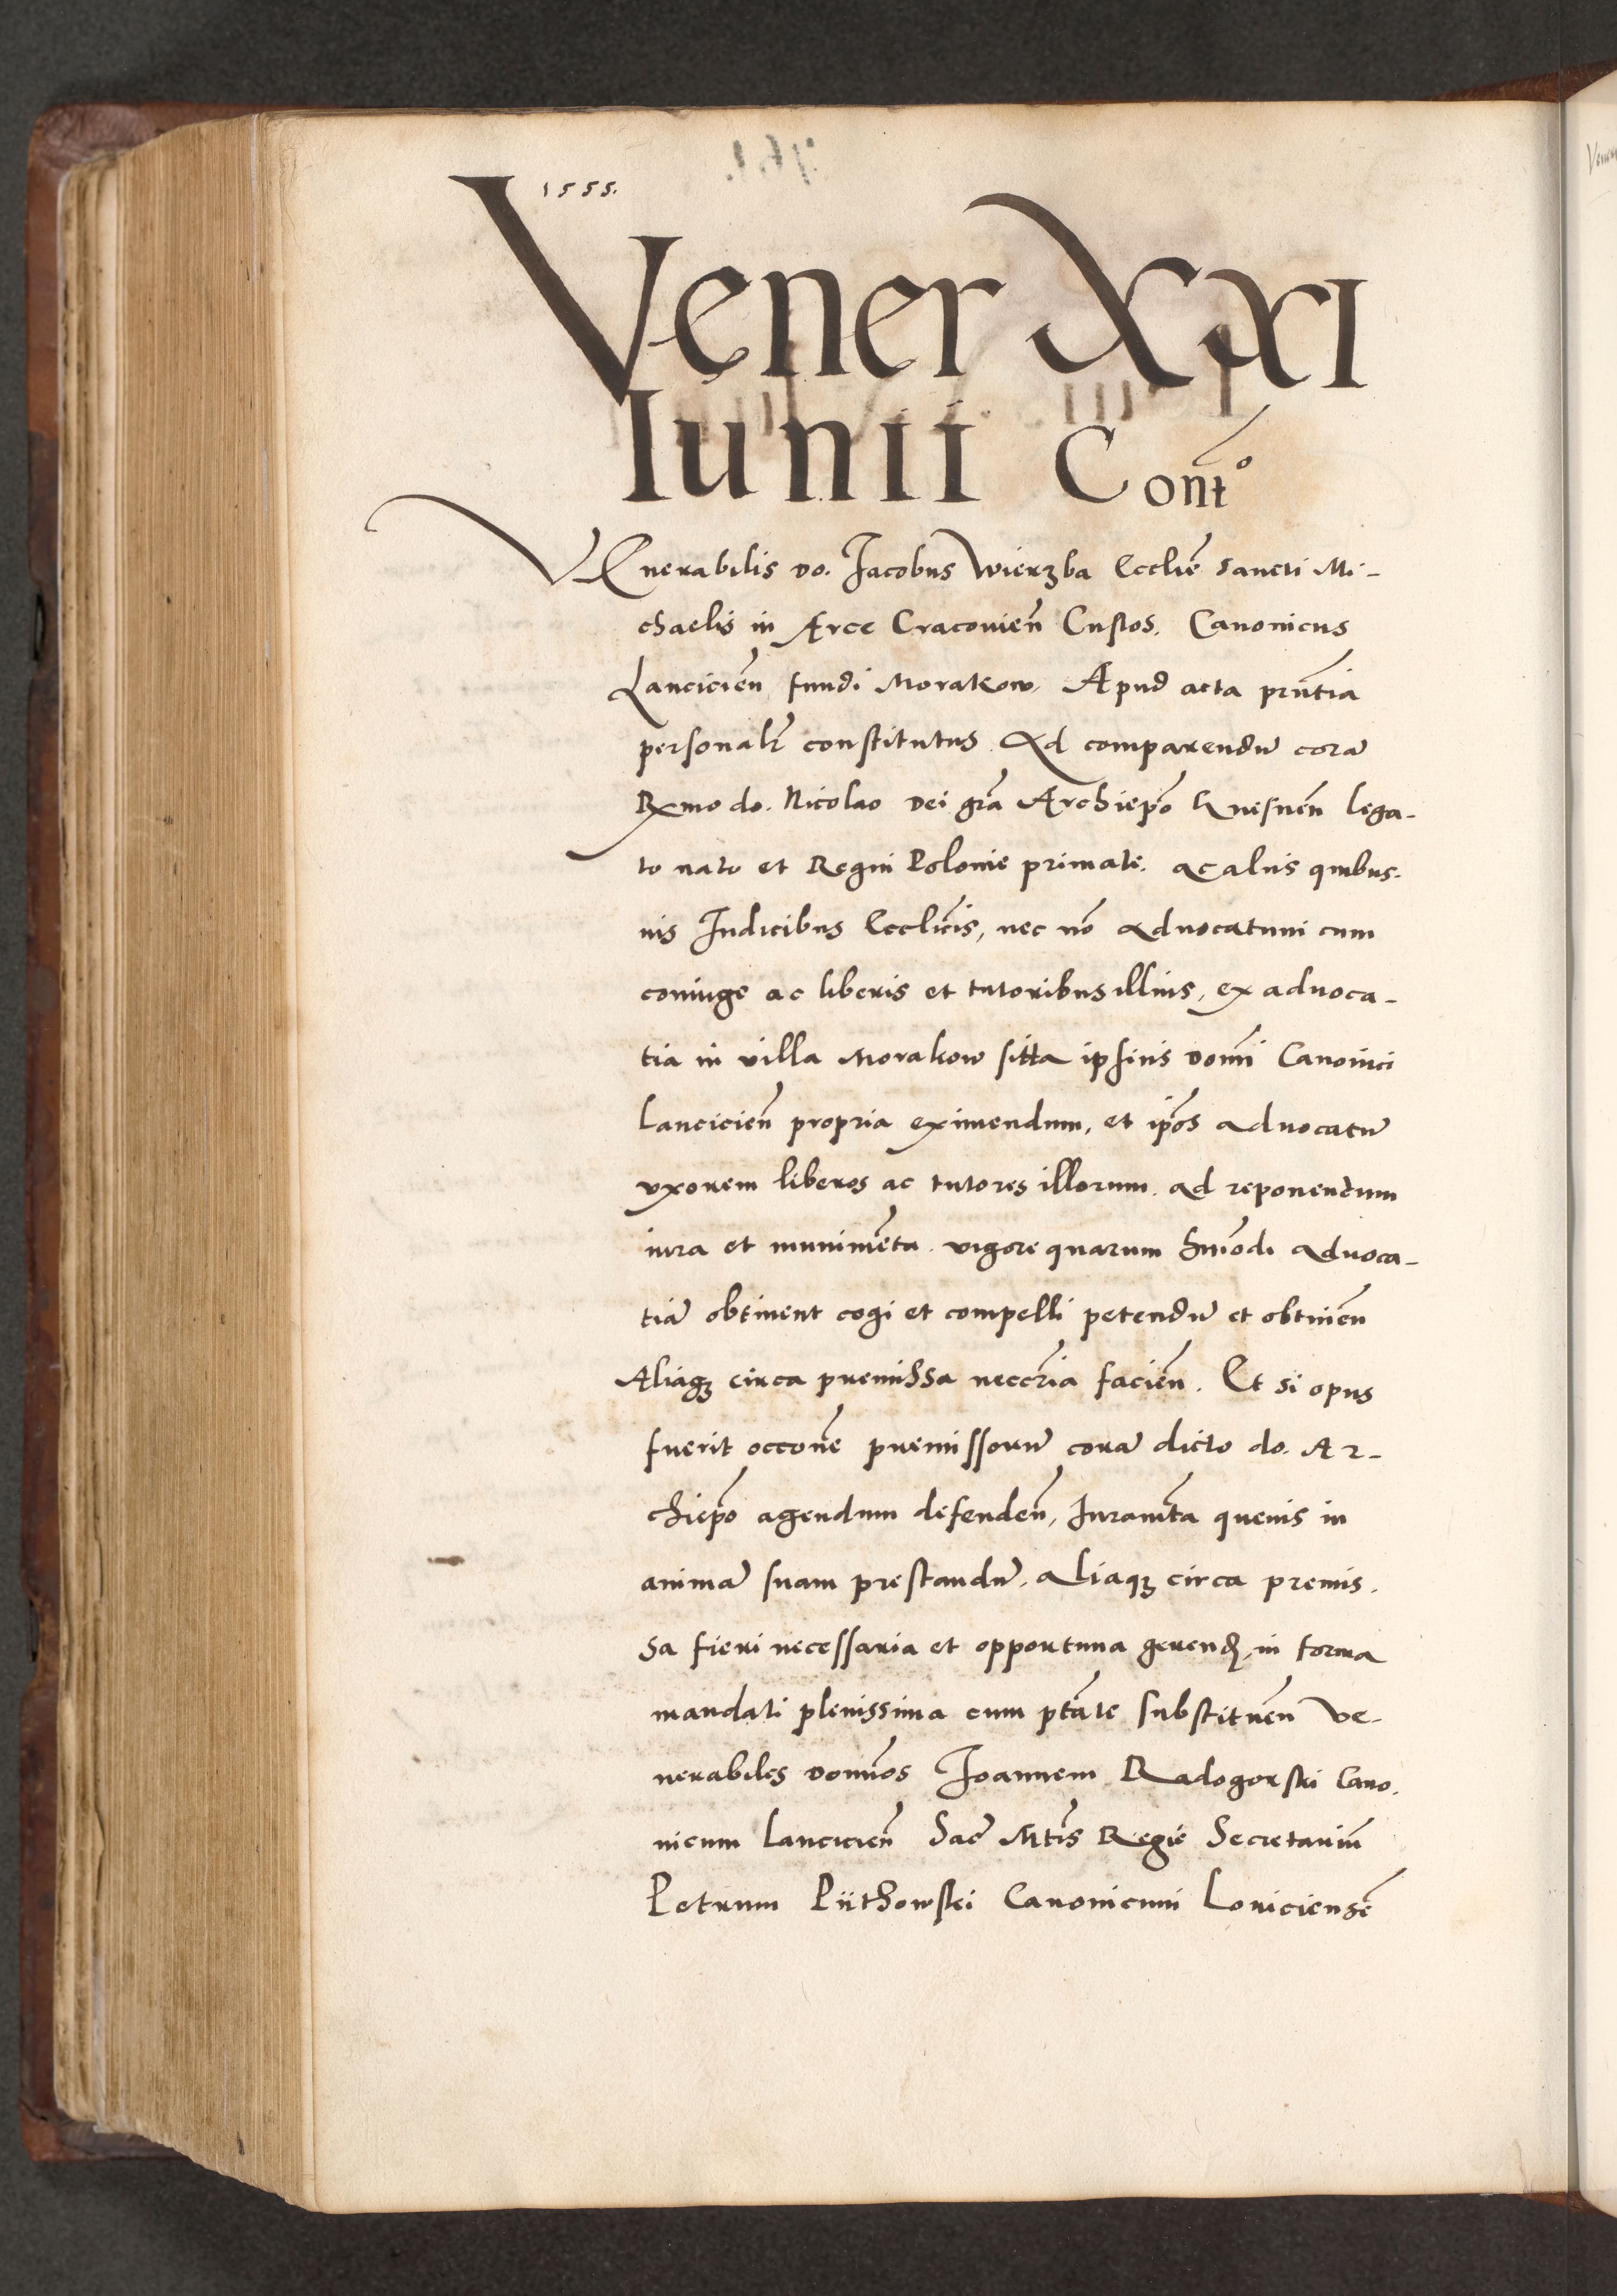 1555.
Vener XXI
Iunii Conto
VEnerabilis do. Jacobus Wierzba Ecclie͂ sancti Mi-
chaelis in Arce Cracovien͂ Custos. Canonicus
Lancicien͂ fundi Morakow. Apud acta prn͂tia
personalr͂ constitutus. Ad comparendu͂ cora͂
Rxmo do. Nicolao dei gra͂ Archiepo͂ Gnesnen͂ lega-
to nato et Regni Polonie primate. ac aliis quibus-
uis Judicibus Ecclicis͂, nec no͂ aduocatum cum
coniuge ac liberis et tutoribus illius, ex aduoca-
tia in villa Morakow sitta ipsius domi͂ Canonici
Lancicien͂ propria eximendum, et ipo͂s aduocatu͂
vxorem liberos ac tutores illorum. ad reponendum
iura et munime͂ta. vigore quarum hmo͂di aduoca-
tia͂ obtinent cogi et compelli petendu͂ et obtinen͂
Aliaqʒ circa premissa neccr͂ia facien͂. Et si opus
fuerit occone͂ premissoru͂ cora͂ dicto do. Ar-
chiepo͂ agendum defenden͂, Iuramt͂a queuis in
anima͂ suam prestandu͂. aliaqʒ circa premis-
sa fieri necessaria et opportuna gerend͂, in forma
mandati plenissima cum pta͂te substituen͂ Ve-
nerabiles domno͂s Joannem Radogorski Cano-
nicum Lancicien͂ Sac͂ Mtis͂ Regie Secretariu͂
Petrum Piithowski Canonicum Louiciense͂